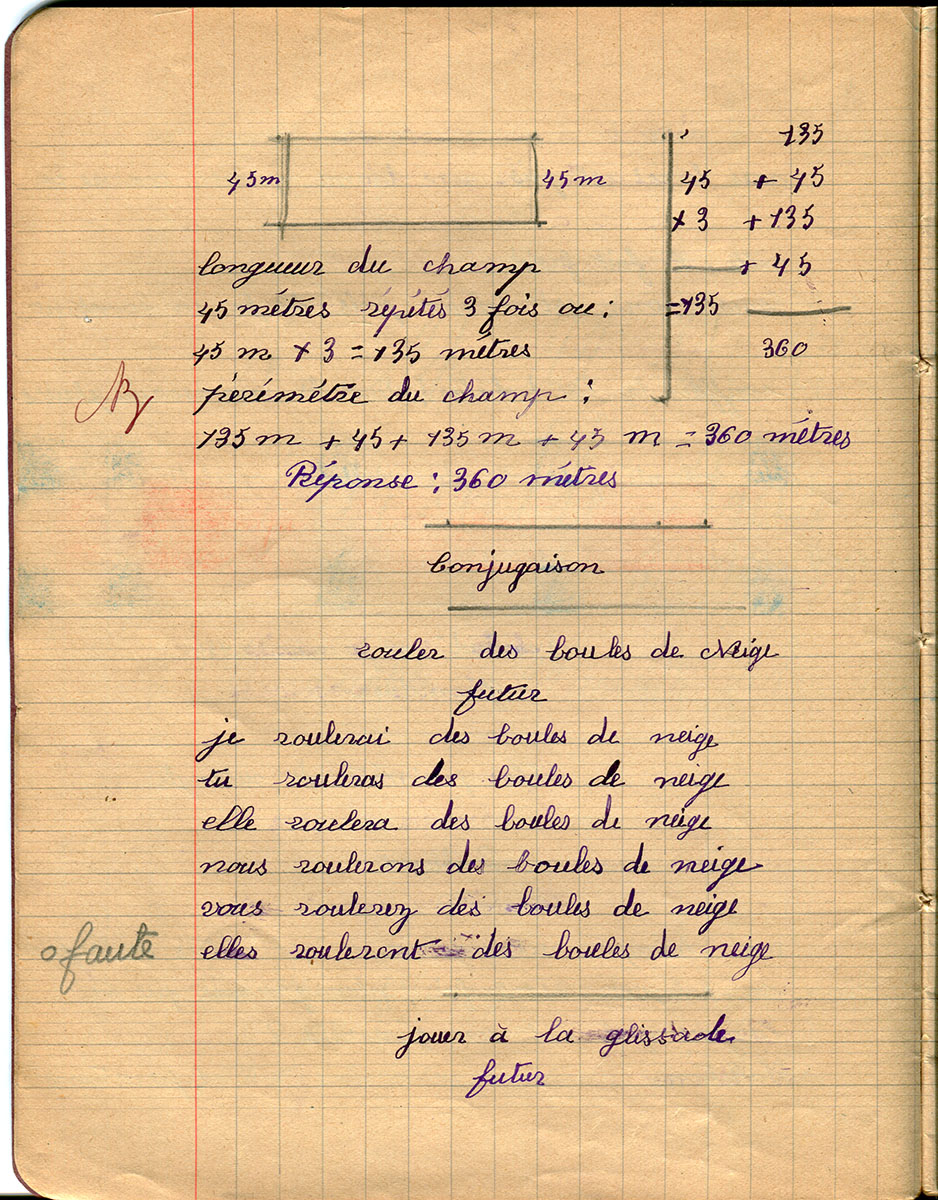 45m 45m
135
45 + 45
× 3 + 135
+ 45
= 135
360
longueur du champ
45 mètres répétés 3 fois ou :
45 m × 3 = 135 mètres
périmètre du champ :
135 m + 45 + 135 m + 45 m = 360 mètres
Réponse : 360 mètres
Conjugaison
rouler des boules de Neige
futur
je roulerai des boules de neige
tu rouleras des boules de neige
elle roulera des boules de neige
nous roulerons des boules de neige
vous roulerez des boules de neige
0 faute
elles rouleront des boules de neige
jouer à la glissade
futur